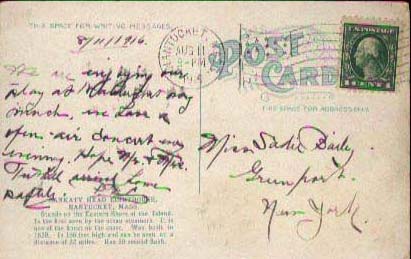 THIS SPACE FOR WRITING MESSAGES.
8/11/1916.
NANTUCKET
AUG 11
-PM
POST CARD
U.S. POSTAGE
1 CENT
THE SPACE FOR ADDRESS ONLY.
We are enjoying our
stay at Nantucket very
much, we have a
open-air concert every
evening. Hope Mr. & Mrs.
arrived home
safely.
Miss Sadie
Greenport.
New York.
SANKATY HEAD LIGHTHOUSE,
NANTUCKET, MASS.
Stands on the Eastern Shore of the Island.
Is the first seen by the ocean steamers. It is
one of the finest on the coast. Was built in
1850. Is 150 feet high and can be seen at a
distance of 22 miles. Has 50 second flash.